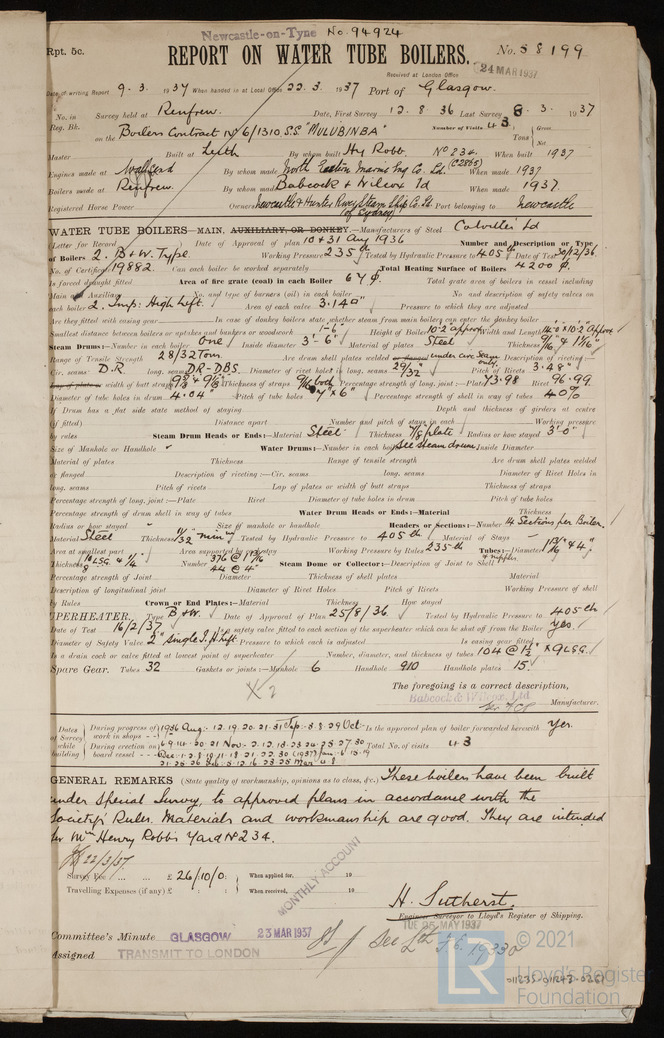 Newcastle-on-Tyne No. 94924
Rpt. 5c.
REPORT ON WATER TUBE BOILERS. No. 58199
Received at London Office 24 MAR 1937
Date of writing Report 9. 3. 1937 When handed in at Local Office 22. 3. 1937 Port of Glasgow.
No. in Survey held at Renfrew. Date, First Survey 12. 8. 36 Last Survey 8. 3. 1937
Reg. Bk. Number of Visits 43
on the Boilers Contract No 6/1310 S.S. "MULUBINBA" Tons Gross Net
Master Built at Leith By whom built Hy Robb No 234. When built 1937
Engines made at Wallsend By whom made North Eastern Marine Eng Co. Ltd. (C2865) When made 1937
Boilers made at Renfrew. By whom made Babcock & Wilcox Ld When made 1937.
Registered Horse Power Owners Newcastle & Hunter River Steam Ship Co. Ld. (of Sydney) Port belonging to Newcastle
WATER TUBE BOILERS—MAIN, AUXILIARY, OR DONKEY.—Manufacturers of Steel Colvilles Ld
Letter for Record Date of Approval of plan 10 & 31 Aug 1936 Number and Description or Type
of Boilers 2. B & W. Type Working Pressure 235 lb Tested by Hydraulic Pressure to 405 lb Date of Test 30/12/36.
No. of Certificate 19882. Can each boiler be worked separately Total Heating Surface of Boilers 4200
Is forced draught fitted Area of fire grate (coal) in each Boiler 64 Total grate area of boilers in vessel including
Main and Auxiliary No. and type of burners (oil) in each boiler No. and description of safety valves on
each boiler 2. Imp. High Lift. Area of each valve 3.140" Pressure to which they are adjusted
Are they fitted with easing gear In case of donkey boilers state whether steam from main boilers can enter the donkey boiler
Smallest distance between boilers or uptakes and bunkers or woodwork 1-6" Height of Boiler 10.2 approx Width and Length 14.0 x 10.2 Approx
Steam Drums:—Number in each boiler One Inside diameter 3'-6" Material of plates Steel Thickness 9/16 & 1 1/16"
Range of Tensile Strength 28/32 Tons Are drum shell plates welded or flanged under care Seam only. Description of riveting:—
Cir. seams D.R. long. seams DR-DBS. Diameter of rivet holes in long. seams 29/32" Pitch of Rivets 3.48"
Lap of plate or width of butt straps Thickness of straps 9/16 both Percentage strength of long. joint:—Plate 73.98 Rivet 96.99
Diameter of tube holes in drum 4.04" Pitch of tube holes 7" x 6" Percentage strength of shell in way of tubes 40%
If Drum has a flat side state method of staying Depth and thickness of girders at centre
(if fitted) Distance apart Number and pitch of stays in each Working pressure
by rules Steam Drum Heads or Ends:—Material Steel Thickness 7/8 plate Radius or how stayed 3'-0"
Size of Manhole or Handhole Water Drums:—Number in each boiler See Steam drum Inside Diameter
Material of plates Thickness Range of tensile strength Are drum shell plates welded
or flanged Description of riveting:—Cir. seams long. seams Diameter of Rivet Holes in
long. seams Pitch of rivets Lap of plates or width of butt straps Thickness of straps
Percentage strength of long. joint:—Plate Rivet Diameter of tube holes in drum Pitch of tube holes
Percentage strength of drum shell in way of tubes Water Drum Heads or Ends:—Material Thickness
Radius or how stayed Size of manhole or handhole Headers or Sections:—Number 14 Sections per Boiler.
Material Steel Thickness 11/32" min Tested by Hydraulic Pressure to 405 lb Material of Stays
Area at smallest part Area supported by each stay Working Pressure by Rules 235 lb Tubes:—Diameter 1 13/16" & 4"
Thickness Number 376 @ 1 13/16 44 @ 4" Steam Dome or Collector:—Description of Joint to Shell
Percentage strength of Joint Diameter Thickness of shell plates Material
Description of longitudinal joint Diameter of Rivet Holes Pitch of Rivets Working Pressure of shell
by Rules Crown or End Plates:—Material Thickness How stayed
SUPERHEATER. Type B & W. Date of Approval of Plan 25/8/36. Tested by Hydraulic Pressure to 405 lb
Date of Test 16/2/37 Is a safety valve fitted to each section of the superheater which can be shut off from the Boiler Yes
Diameter of Safety Valve 2" single I. H Lift Pressure to which each is adjusted Is easing gear fitted
Is a drain cock or valve fitted at lowest point of superheater Number, diameter, and thickness of tubes 104 @ 1 1/2" x 9 L.S.G.
Spare Gear. Tubes 32 Gaskets or joints:—Manhole 6 Handhole 910 Handhole plates 15.
X 2
The foregoing is a correct description,
Babcock & Wilcox, Ltd
Manufacturer.
Dates of Survey while building
During progress of work in shops 1936 Aug- 12. 19. 20. 21. 31 Sep- 3. 8. 29 Oct- Is the approved plan of boiler forwarded herewith Yes.
During erection on board vessel 6. 9. 14. 20. 21 Nov- 2. 12. 18. 23 24. 25. 27. 30 Total No. of visits 43
GENERAL REMARKS (State quality of workmanship, opinions as to class, &c.) These boilers have been built
under Special Survey, to approved plans in accordance with the
Society's Rules. Materials and workmanship are good. They are intended
for Mr Henry Robb's Yard No 234.
22/3/37.
Survey Fee £ 26/10/0: When applied for, 19
Travelling Expenses (if any) £ : : When received, 19
MONTHLY ACCOUNT
H. Sutherst.
Engineer Surveyor to Lloyd's Register of Shipping.
TUE 25 MAY 1937
Committee's Minute GLASGOW 23 MAR 1937
Assigned TRANSMIT TO LONDON
See
J.E. 19330
LR © 2021
Lloyd's Register
Foundation
011235-011243-0261